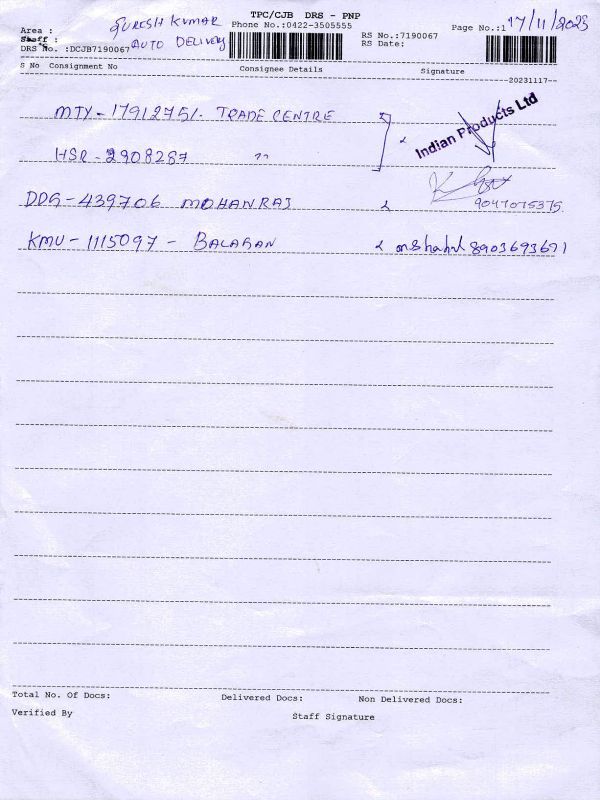 TPC/CJB DRS - PNP
SURESH KUMAR
Phone No.:0422-3505555
Page No.:1
17/11/2023
Area :
Staff :
AUTO DELIVERY
RS No.:7190067
RS Date:
DRS No. :DCJB7190067
S No Consignment No Consignee Details Signature
20231117
MTY - 17912751. TRADE CENTRE
Indian Products Ltd
HSR - 2908287 "
DDG - 439706 MOHANRAJ
9047075375
KMU - 1115097 - BALAGAN 8903693671
Total No. Of Docs: Delivered Docs: Non Delivered Docs:
Verified By Staff Signature